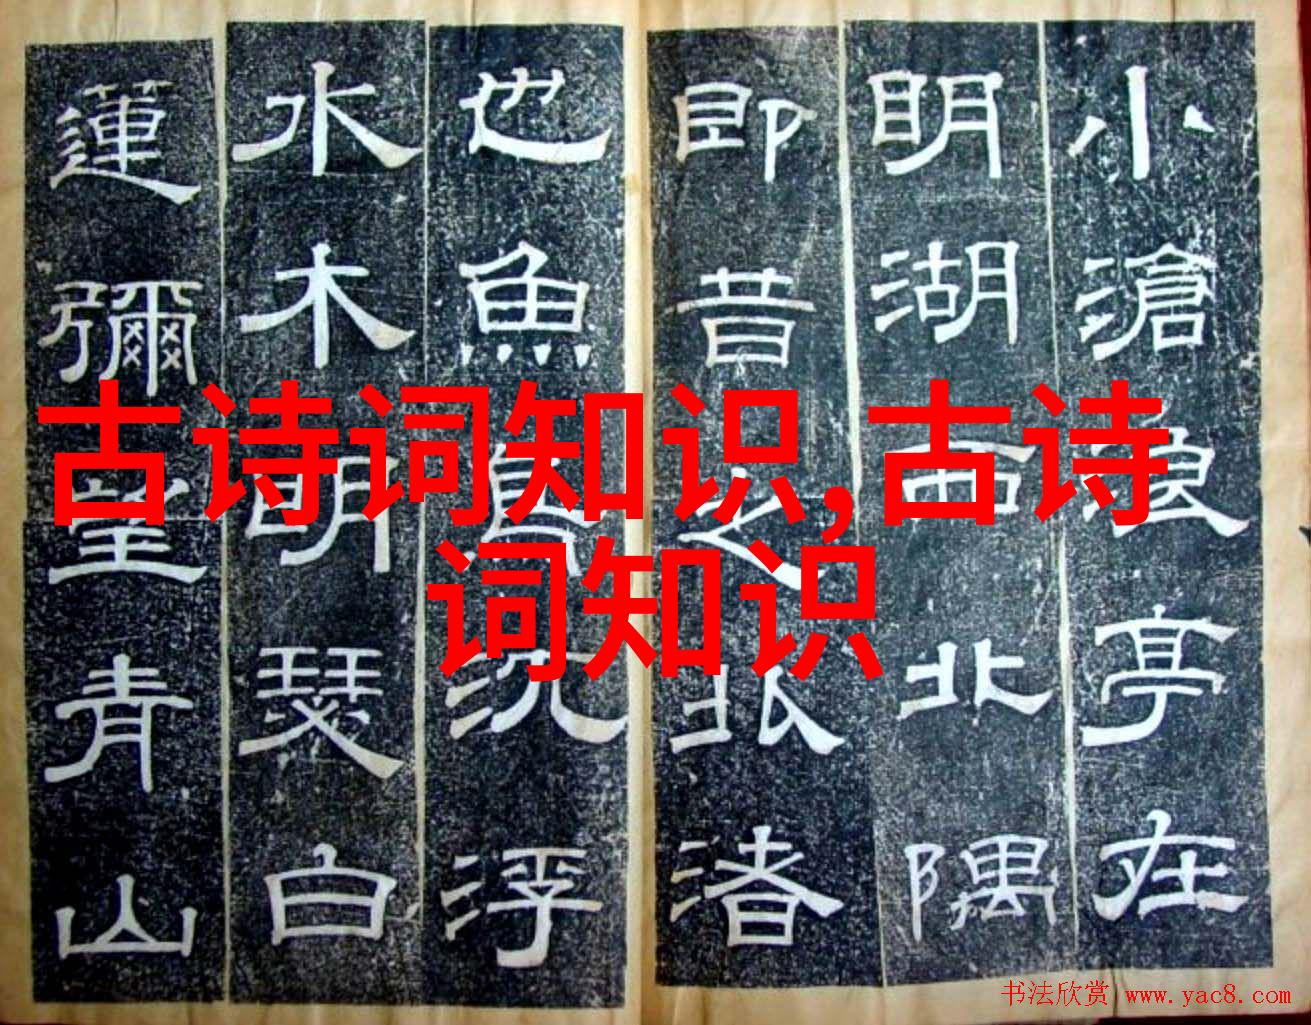 小滄浪亭在
明湖西北隅
即昔之北渚
也魚鳥沉浮
水木明瑟白
蓮彌望青山
古诗词知识,古诗
词知识
书法欣赏 www.yac8.com